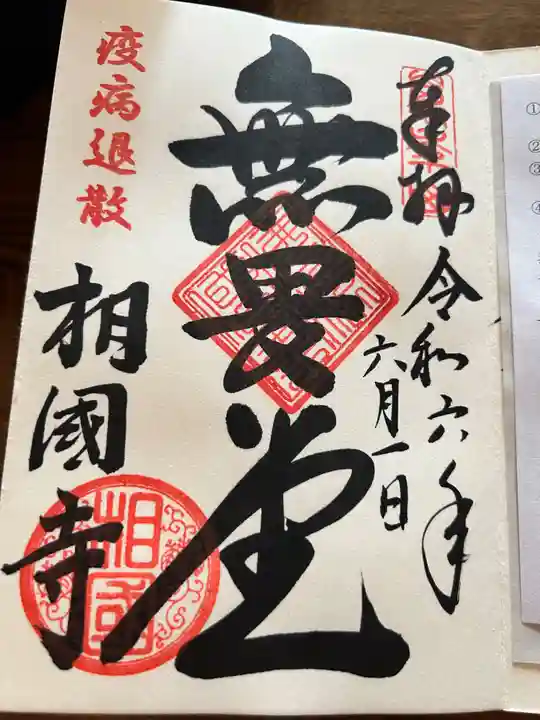 奉拝
令和六年
六月一日
無畏堂
相國寺
相國
疫病退散
①
②
③
④